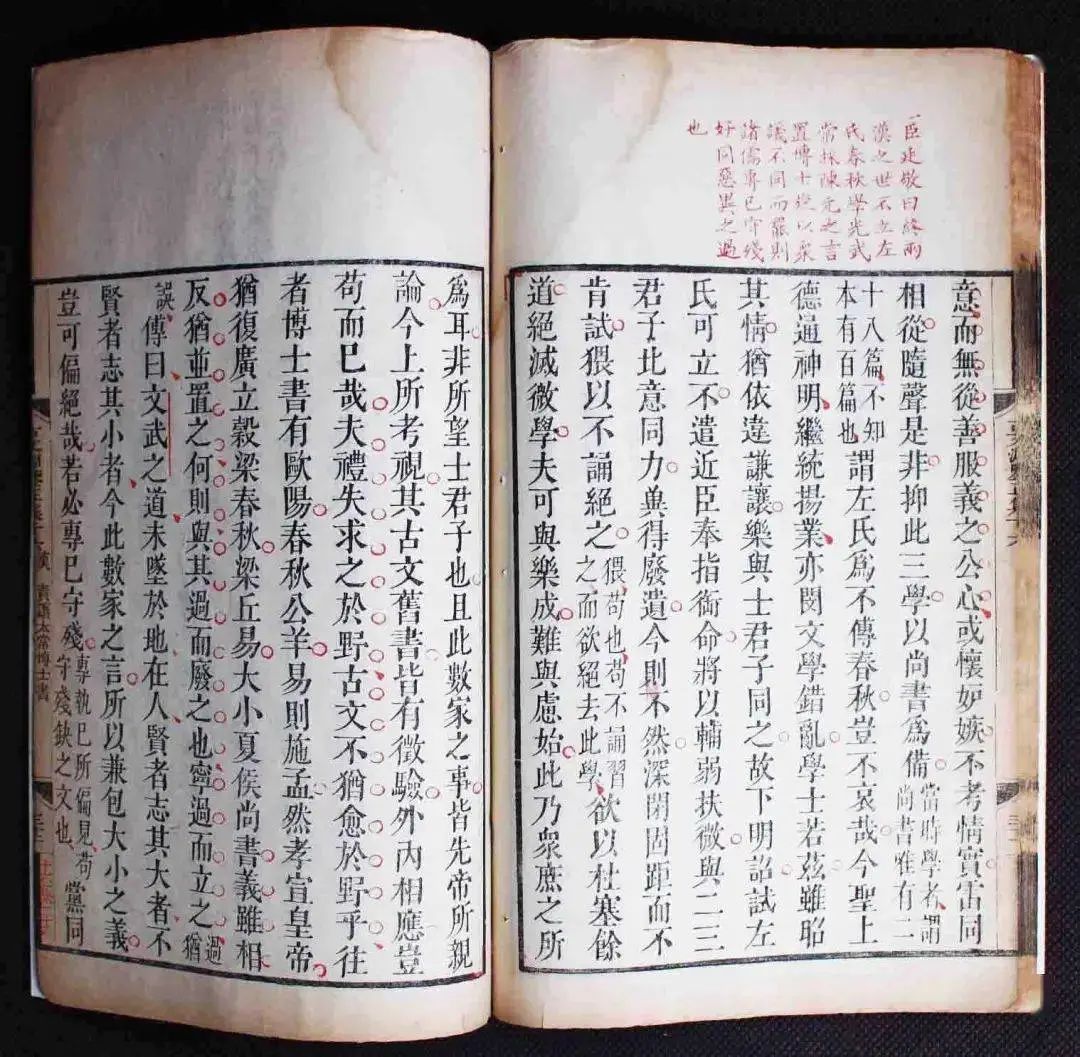 臣廷敬曰終兩
漢之世不立左
氏春秋學光武
常採陳元之言
置博士旋以衆
議不同而罷則
諸儒專已守殘
好同惡異之過
也
意而無從善服義之公心或懷妒嫉不考情實雷同
相從隨聲是非抑此三學以尚書爲備當時學者謂尚書唯有二
十八篇不知本有百篇也謂左氏爲不傳春秋豈不哀哉今聖上
德通神明繼統揚業亦閔文學錯亂學士若茲雖昭
其情猶依違謙讓樂與士君子同之故下明詔試左
氏可立不遣近臣奉指銜命將以輔弱扶微與二三
君子比意同力兾得廢遺今則不然深閉固距而不
肯試猥以不誦絕之猥苟也苟不誦習之而欲絕去此學欲以杜塞餘
道絕滅微學夫可與樂成難與慮始此乃眾庶之所
爲耳非所望士君子也且此數家之事皆先帝所親
論今上所考視其古文舊書皆有徵驗外內相應豈
苟而已哉夫禮失求之於野古文不猶愈於野乎往
者博士書有歐陽春秋公羊易則施孟然孝宣皇帝
猶復廣立穀梁春秋梁丘易大小夏侯尚書義雖相
反猶並置之何則與其過而廢之也寧過而立之過猶
誤傳曰文武之道未墜於地在人賢者志其大者不
賢者志其小者今此數家之言所以兼包大小之義
豈可偏絕哉若必專已守殘專執已所偏見苟守殘缺之文也黨同
太常博士書